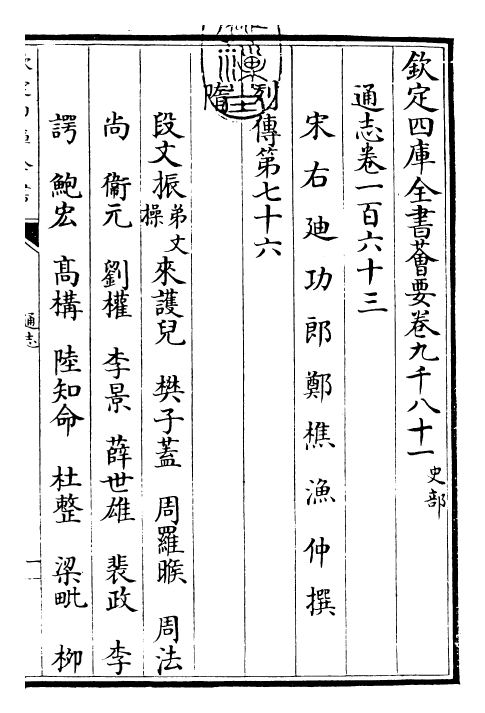 欽定四庫全書薈要卷九千八十一 史部
通志卷一百六十三
宋右廸功郎鄭樵漁仲撰
列傳第七十六
隋
段文振 弟文操 來護兒 樊子蓋 周羅睺 周法
尚 衞元 劉權 李景 薛世雄 裴政 李
諤 鮑宏 高構 陸知命 杜整 梁毗 柳
通志